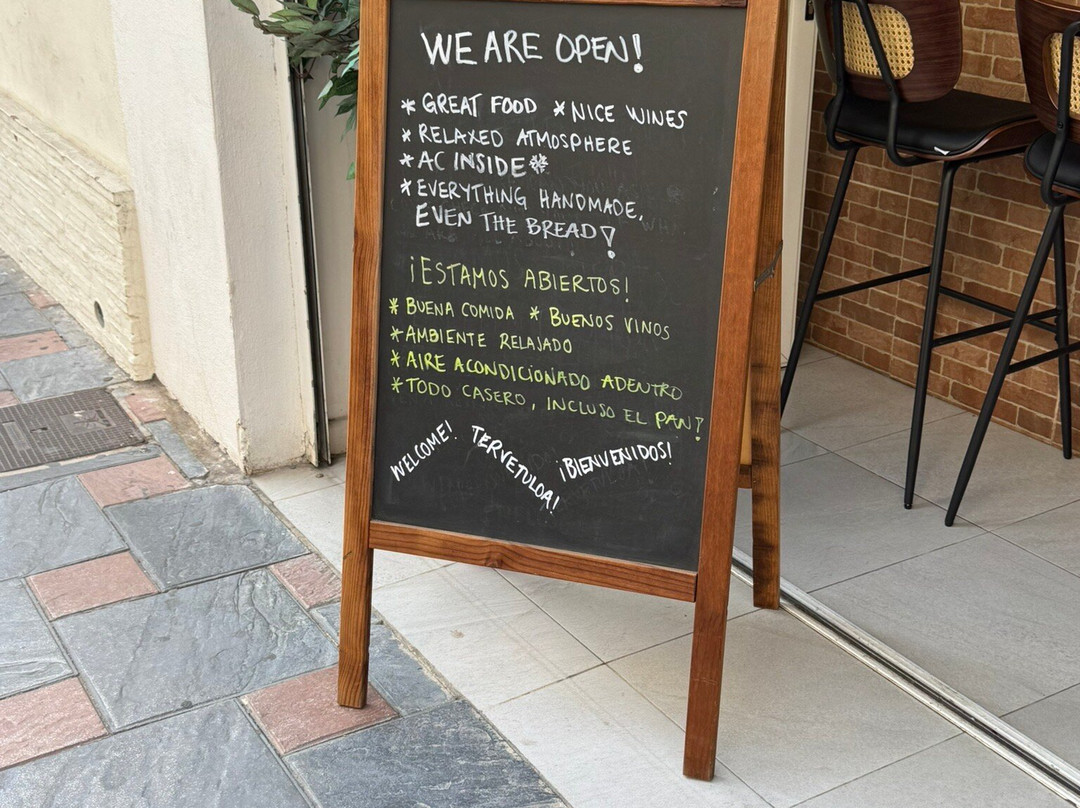 WE ARE OPEN!
* GREAT FOOD * NICE WINES
* RELAXED ATMOSPHERE
* AC INSIDE ❄
* EVERYTHING HANDMADE,
EVEN THE BREAD!
¡ESTAMOS ABIERTOS!
* BUENA COMIDA * BUENOS VINOS
* AMBIENTE RELAJADO
* AIRE ACONDICIONADO ADENTRO
* TODO CASERO, INCLUSO EL PAN!
WELCOME! TERVETULOA! ¡BIENVENIDOS!